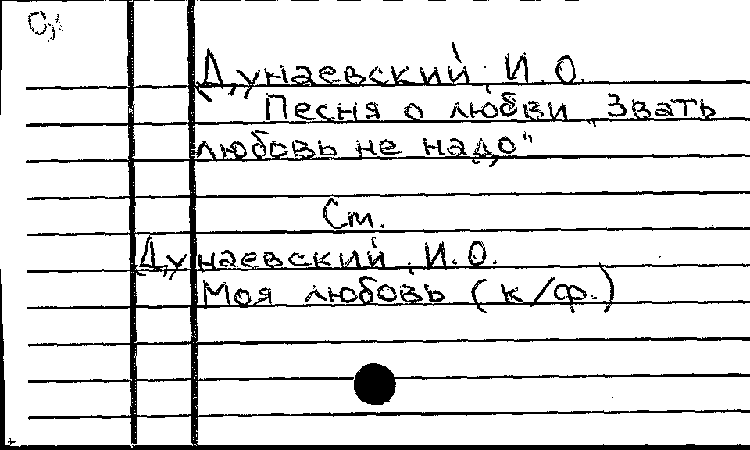 Дунаевский, И. О.
Песня о любви „Звать
любовь не надо"
См.
Дунаевский, И. О.
Моя любовь (к/ф.)